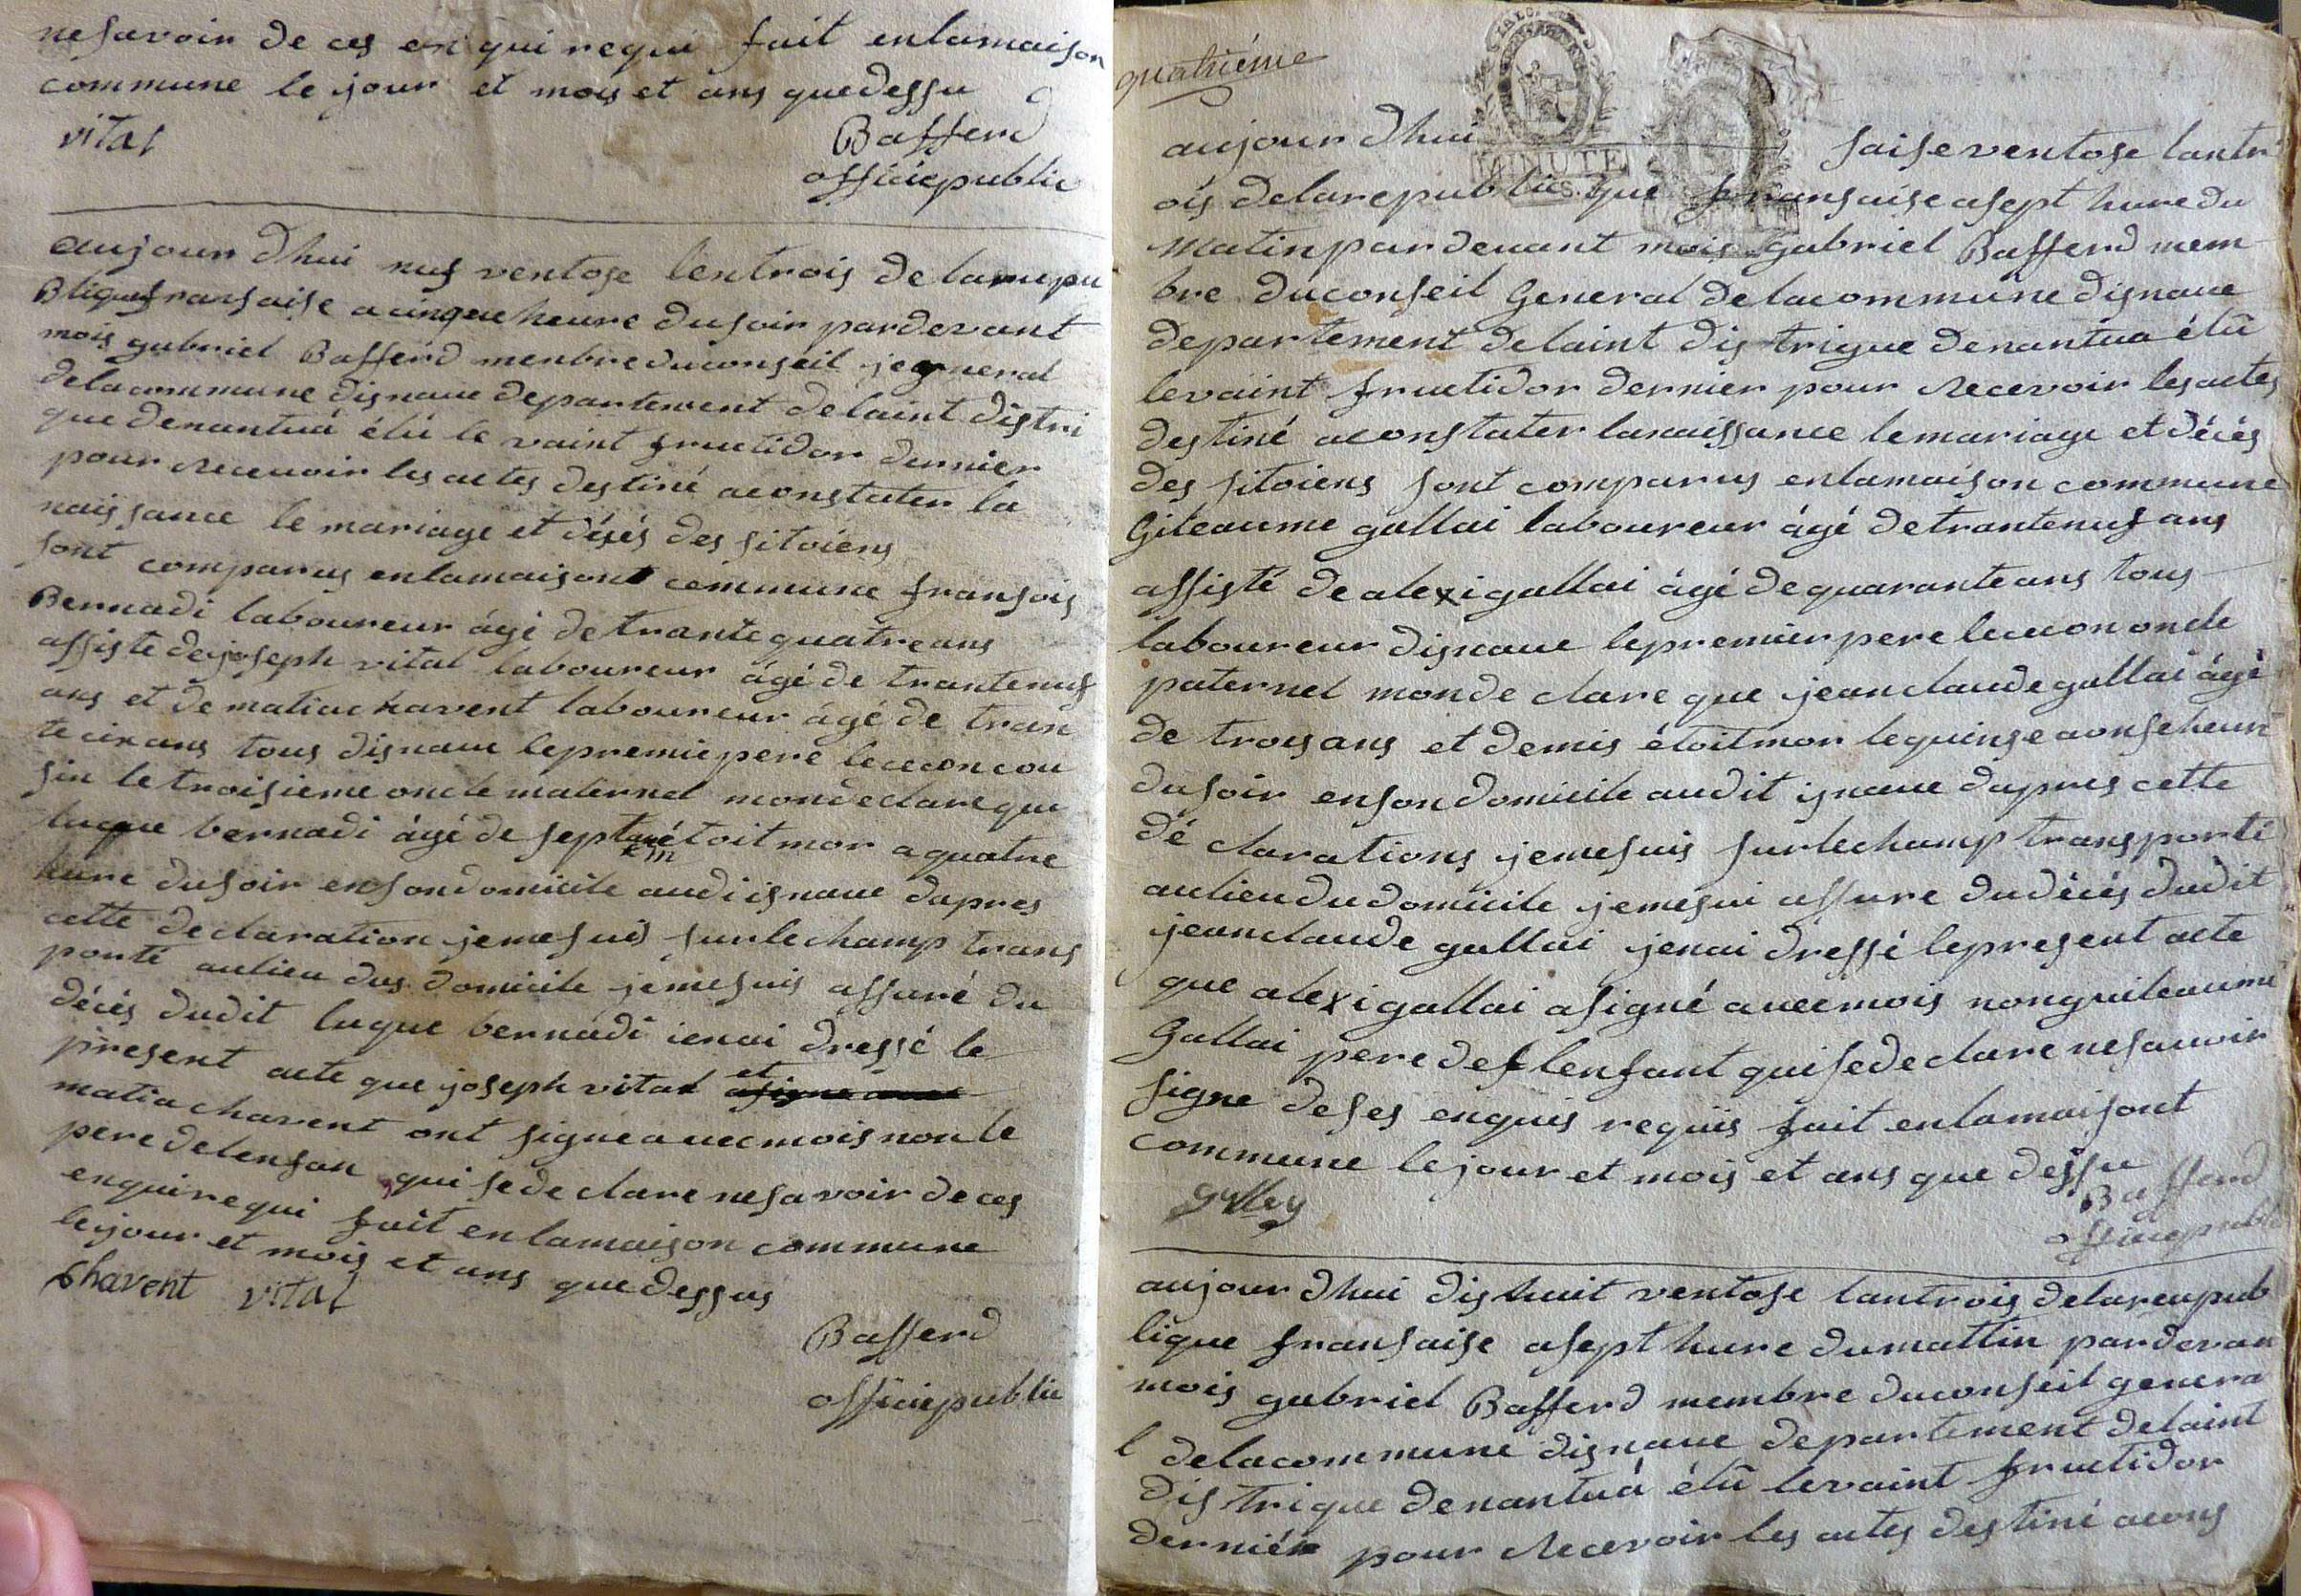 ne savoir de ces en qui requi fait en lamaison
commune le jour et mois et ans que dessu
vital
Bafferd
officiepublic
aujour dhui nuf ventose lentrois de larepu
Bliquefransaise a cinque heure du soir pardevant
mois gabriel Bafferd menbre duconseil jegneral
delacommune disnave departement delaint distri
que denantuá élú le vaint fructidor dernier
pour recevoir les actes destiné aconstater la
naissance le mariage et désés des sitoiens
sont comparus enlamaisont commune fransois
Bernadi laboureur ágé detrante quatre ans
assiste dejoseph vital laboureur ágé de trantenuf
ans et de matiachavent laboureur ágé de tran
tecixans tous disnave lepremiepere lececon cou
sin le troisieme oncle maternel mondeclareque
luque bernadi ágé de sept étoit mor a quatre
hure dusoir ensondomicile audi isnave dapres
cette declaration jemesuis surlechamp trans
porté aulieu dus domicile jemesuis assuré du
décés dudit luque bernadi ienai dressé le
present acte que joseph vital et
matiachavent ont signe avecmois nonle
pere delenfan qui sedeclare nesavoir deces
enquirequi fait enlamaison commune
lejour et mois et ans quedessus
Chavent vital
Bafferd
officiepublic
quatriéme
MINUTE
aujour dhui saise ventose lantr
ois delarepublique fransaise asept hure du
matin pardevant mois gabriel Bafferd mem
bre duconseil General delacommune disnave
departement delaint distrique denantua élû
levaint fructidor dernier pour recevoir lesactes
destiné aconstater lanaissance lemariage et décés
des sitoiens sont comparus enlamaison commune
Gileaume gallai laboureur ágé detrantenuf ans
assisté de alexigallai ágé dequaranteans tous
laboureur disnave lepremier pere lececon oncle
paternel mondeclare que jeanclaudegallai ágé
de troisans et demis étoitmor lequinse aonseheure
dusoir ensondomicile audit isnave dapres cette
déclarations jemesuis surlechamp transporté
aulieu dudomicile jemesui assure dudécés dudit
jeanclaude gallai jenai dressé lepresent acte
que alexigallai asigné avecmois nonguileaume
Gallai pere des lenfant quisedeclare nesavoir
signe deses enquis requis fait enlamaisont
commune lejour et mois et ans que dessu
Galley
Bafferd
officiepublic
aujour dhui dishuit ventose lantrois delareupub
lique fransaise asept hure dumattin pardevan
mois gabriel Bafferd membre duconseil genera
l delacommune disnave departement delaint
distrique denantuá élû levaint fructidor
derniér pour recevoir les actes destiné acons